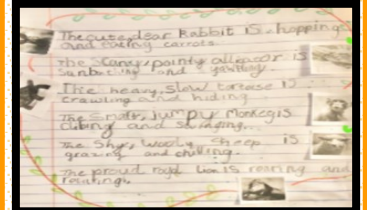 The cute, dear Rabbit is hopping
and eating carrots.
The Scary, pointy alligator is
Sunbathing and
The heavy, slow tortoise is
crawling and hiding
The Small, Jumpy Monkey is
and swinging.
The Shy, Wooly, Sheep is
grazing and chilling.
The proud royal Lion is roaring and